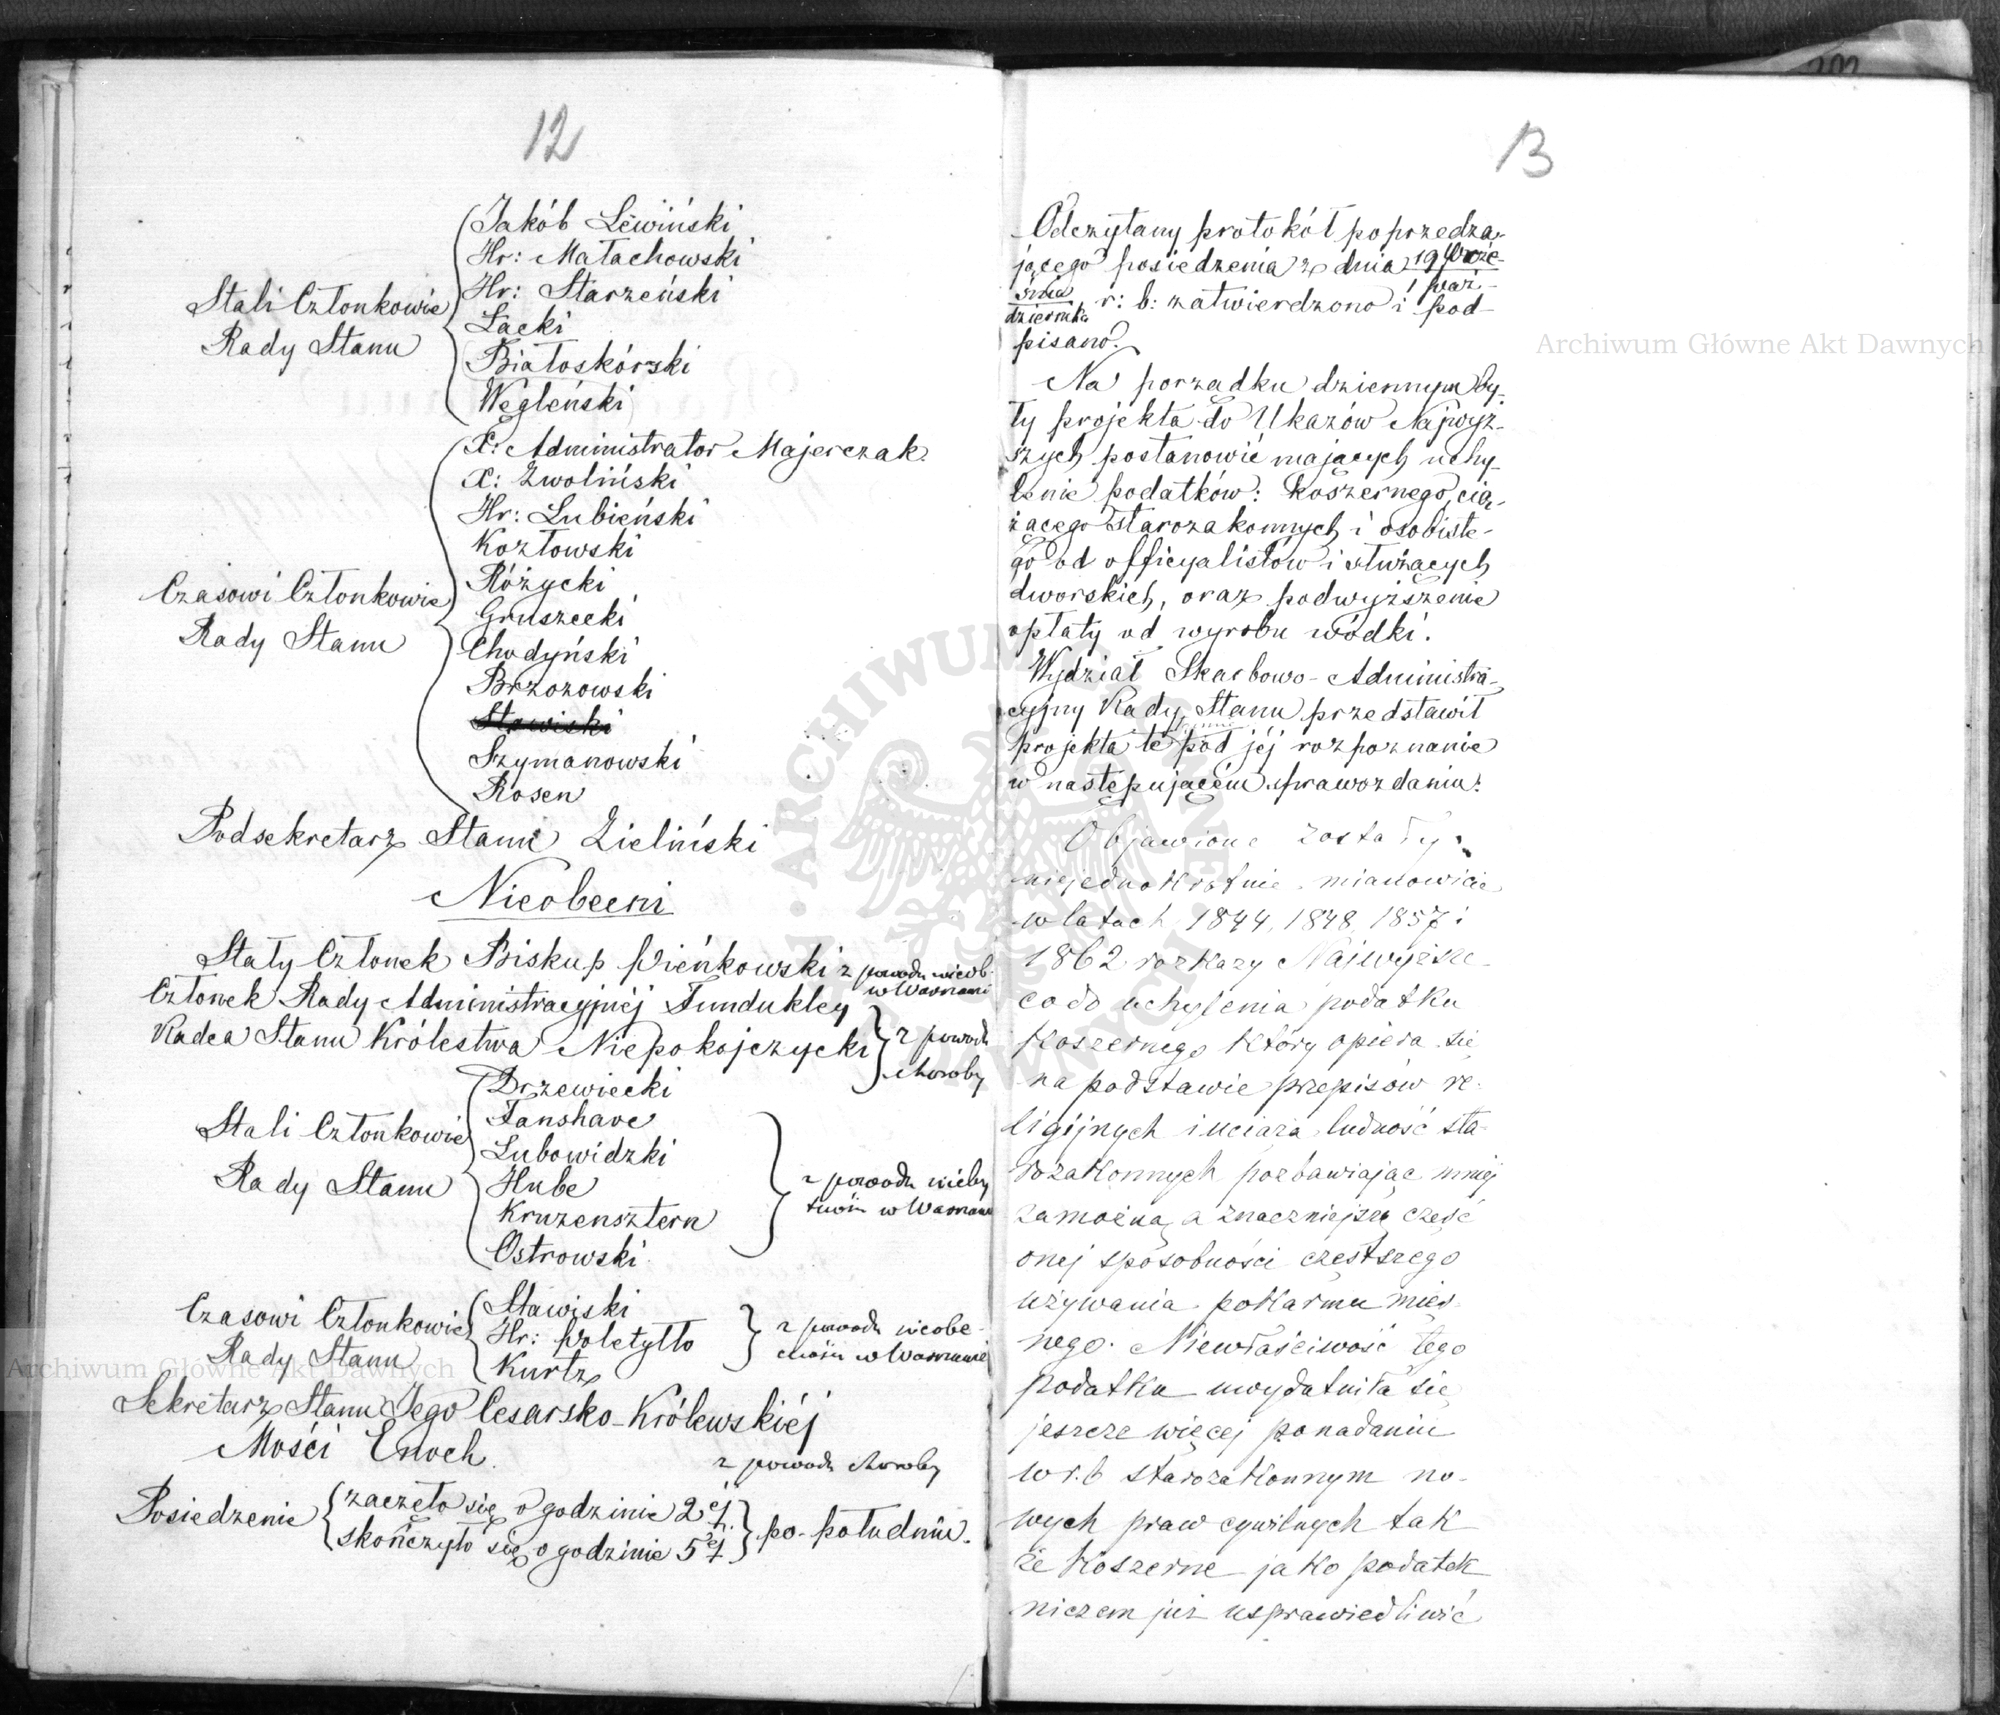 12
Jakób Lewiński
Hr: Małachowski
Hr: Starzeński
Stali Członkowie
Łacki
Rady Stanu
Białoskórski
Węgleński
X: Administrator Majerczak.
X: Zwoliński
Hr: Łubieński
Kozłowski
Różycki
Czasowi Członkowie
Gruszecki
Rady Stanu
Chodyński
Brzozowski
Stawiski
Szymanowski
Rosen
Podsekretarz Stanu Zieliński
Nieobecni
Stały Członek Biskup Pieńkowski z powodu nieob.
w Warszawie
Członek Rady Administracyjnéj Fundukley
Radca Stanu Królestwa Niepokojczycki z powodu
choroby
Drzewiecki
Fanshave
Stali Członkowie
Lubowidzki
Rady Stanu
Hube
z powodu nieby
tności w Warszawie
Kruzensztern
Ostrowski
Czasowi Członkowie
Stawiski
Hr: Poletyłło
z powodu nieobe-
cności w Warszawie
Rady Stanu
Kurtz
Sekretarz Stanu Jego Cesarsko-Królewskiéj
Mości Enoch.
z powodu choroby
Posiedzenie
zaczęło się o godzinie 2éj.
skończyło się o godzinie 5éj.
po-południu.
13
Odczytany protokół poprzedza-
jącego posiedzenia z dnia 19 Wrze-
śnia
Paź-
dziernika r: b: zatwierdzono i pod-
pisano.
Na porządku dziennym by-
ły projekta do Ukazów Najwyż-
szych postanowić mających uchy-
lenie podatków: koszernego, cią-
żącego starozakonnych i osobiste-
go od officyalistów i służących
dworskich, oraz podwyższenie
opłaty od wyrobu wódki.
Wydział Skarbowo-Administra-
cyjny Rady Stanu przedstawił
projekta te pod jéj rozpoznanie
w następującém sprawozdaniu:
Objawione zostały
niejednokrotnie mianowicie
w latach 1844, 1848, 1857 i
1862 rozkazy Najwyższe
co do uchylenia podatku
Koszernego który opiera się
na podstawie przepisów re-
ligijnych i uciąża ludność sta-
rozakonnych pozbawiając mniej
zamożną, a znaczniejszą część
onej sposobności częstszego
używania pokarmu mięs-
nego. Niewłaściwość tego
podatku uwydatniła się
jeszcze więcej po nadaniu
w r. b starozakonnym no-
wych praw cywilnych tak
że Koszerne jako podatek
niczem już usprawiedliwić
Archiwum Główne Akt Dawnych
Archiwum Główne Akt Dawnych